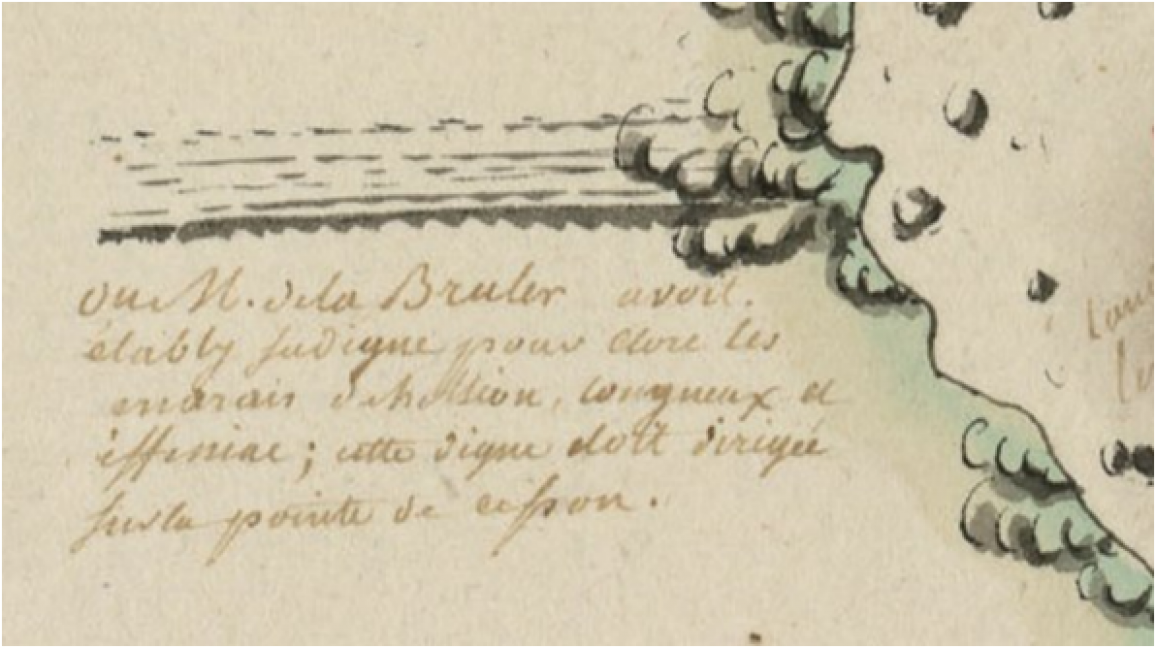 ou M. de la Bruler avoit.
établly sa digue pour clore les
marais de hillion, Longueux et
iffiniac ; cette digue étoit dirigée
sur la pointe de cesson.